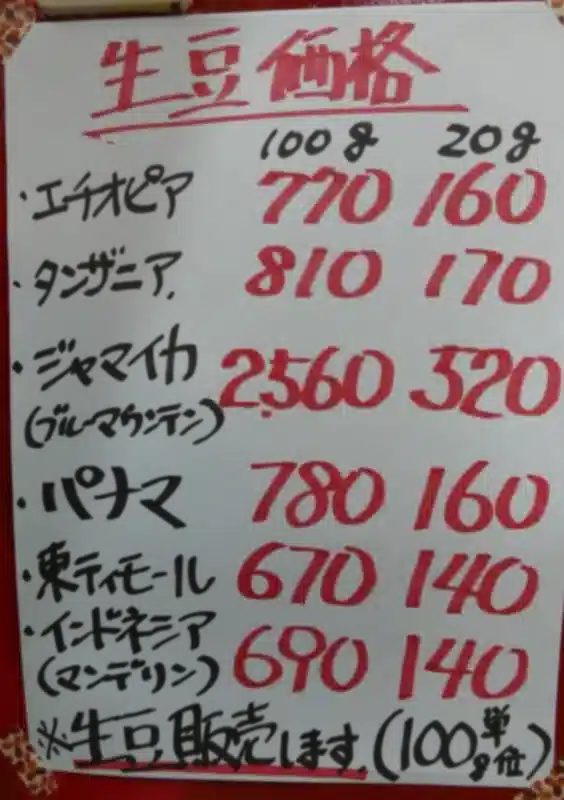 生豆価格
100g 20g
・エチオピア 770 160
・タンザニア. 810 170
・ジャマイカ 2,560 520
(ブルーマウンテン)
・パナマ 780 160
・東ティモール 670 140
・インドネシア 690 140
(マンデリン)
※生豆販売します.(100g単位)